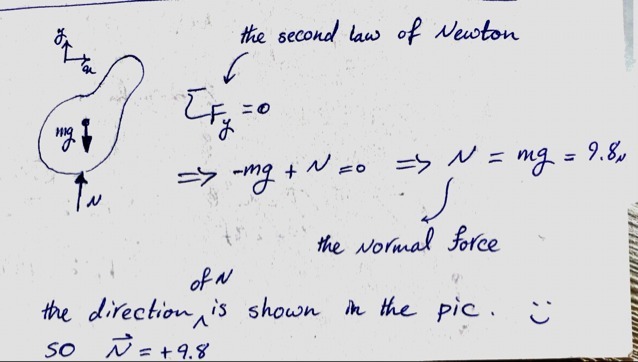 y
x
the second law of Newton
ΣFy = 0
mg
⇒ -mg + N = 0 ⇒ N = mg = 9.8N
N
the Normal force
of N
the direction ^ is shown in the pic. :)
so N⃗ = +9.8